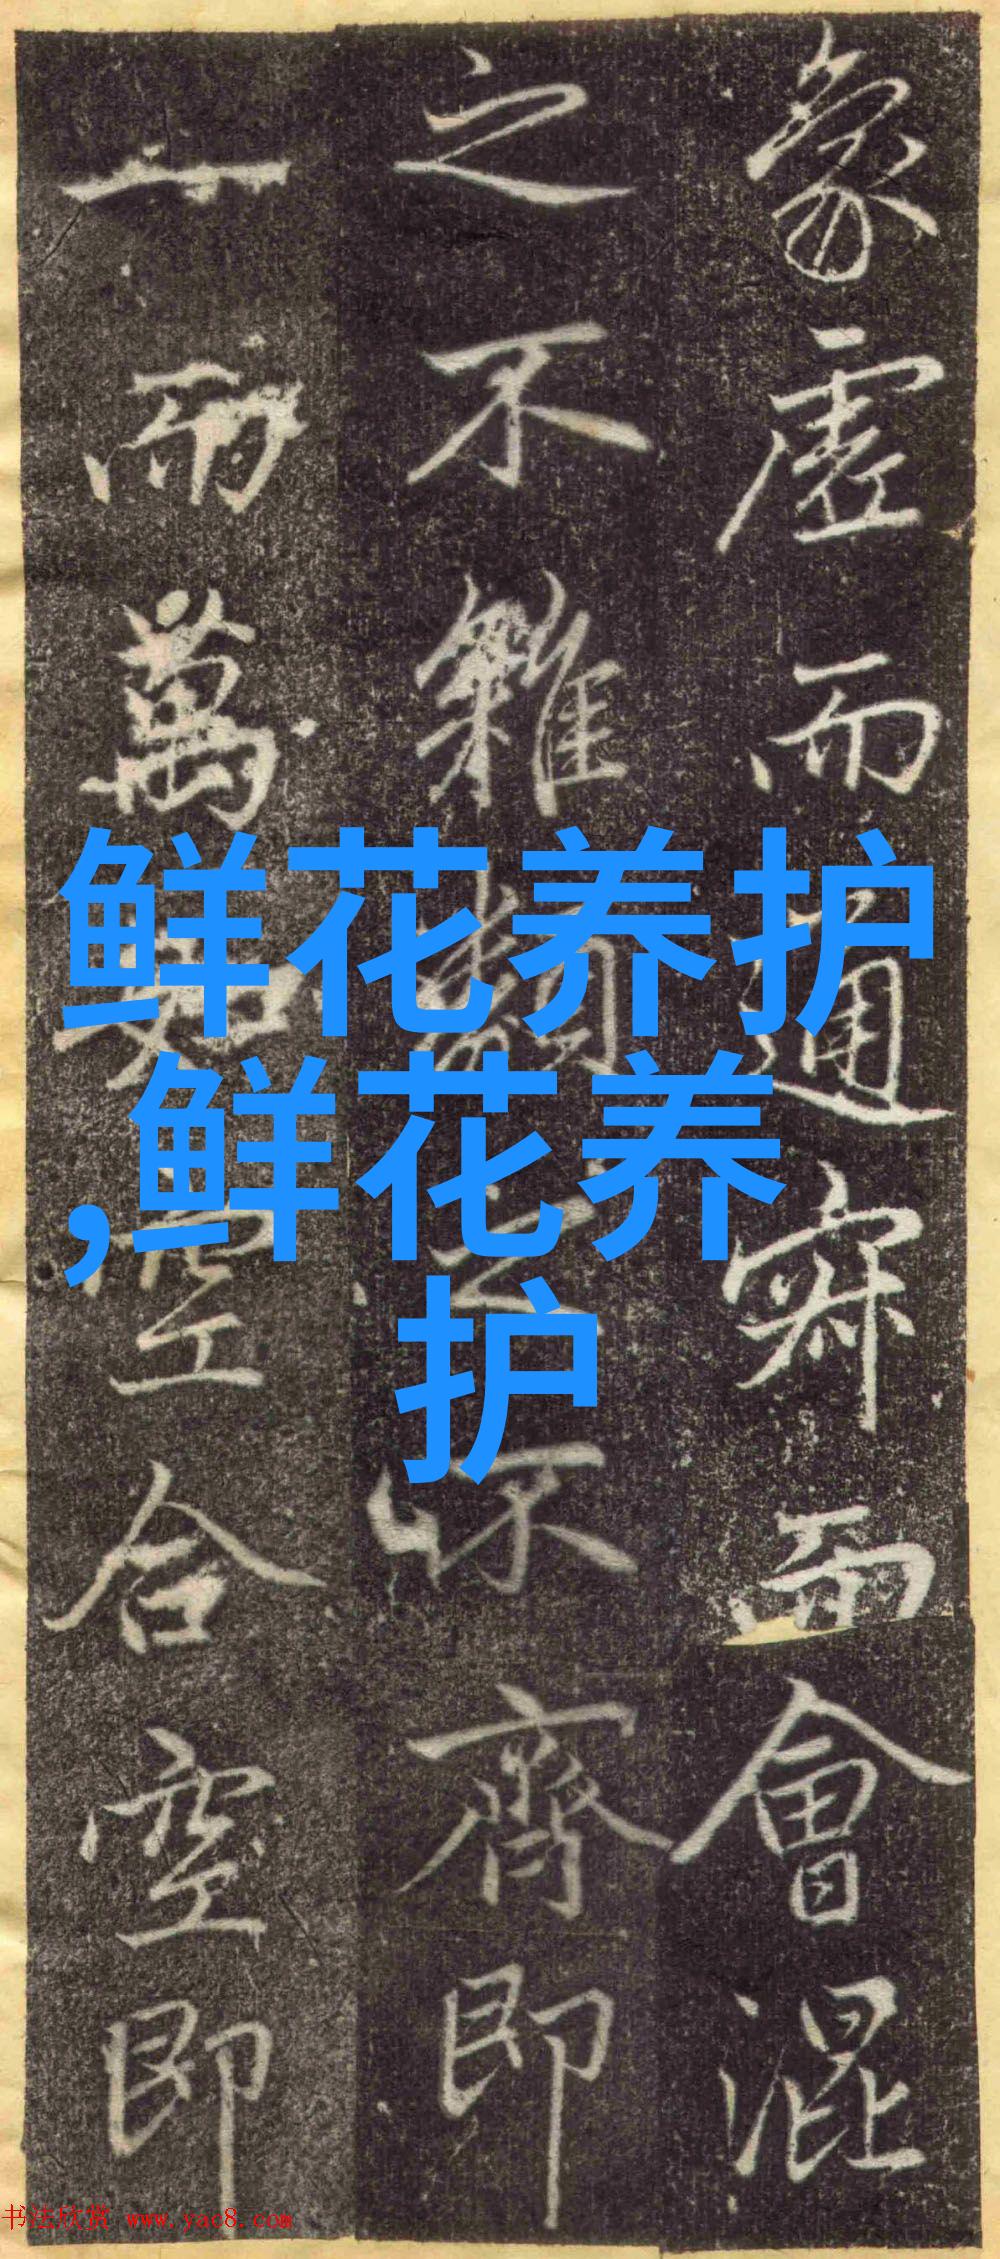 象虛而通寂而會混
之不雜類之不齊即
一而萬如空合空即
鲜花养护
,鲜花养
护
书法欣赏 www.yac8.com